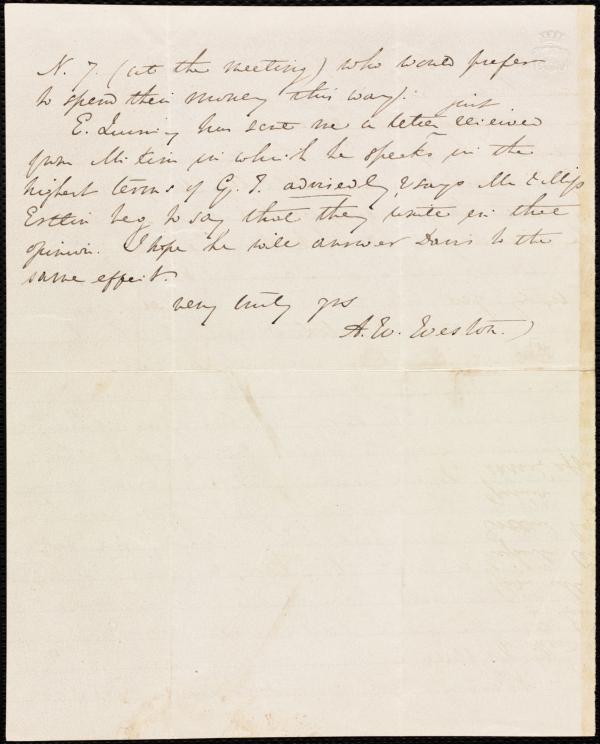 N. Y. (at the meeting) who would prefer
to spend their money this way).
just
E. Quincy has sent me a letter received
from Mr. Estlin in which he speaks in the
highest terms of G. T. advisedly, & says Mr & Miss
Estlin beg to say that they unite in that
opinion. I hope he will answer Davis to the
same effect.
very truly yrs
A. W. Weston.